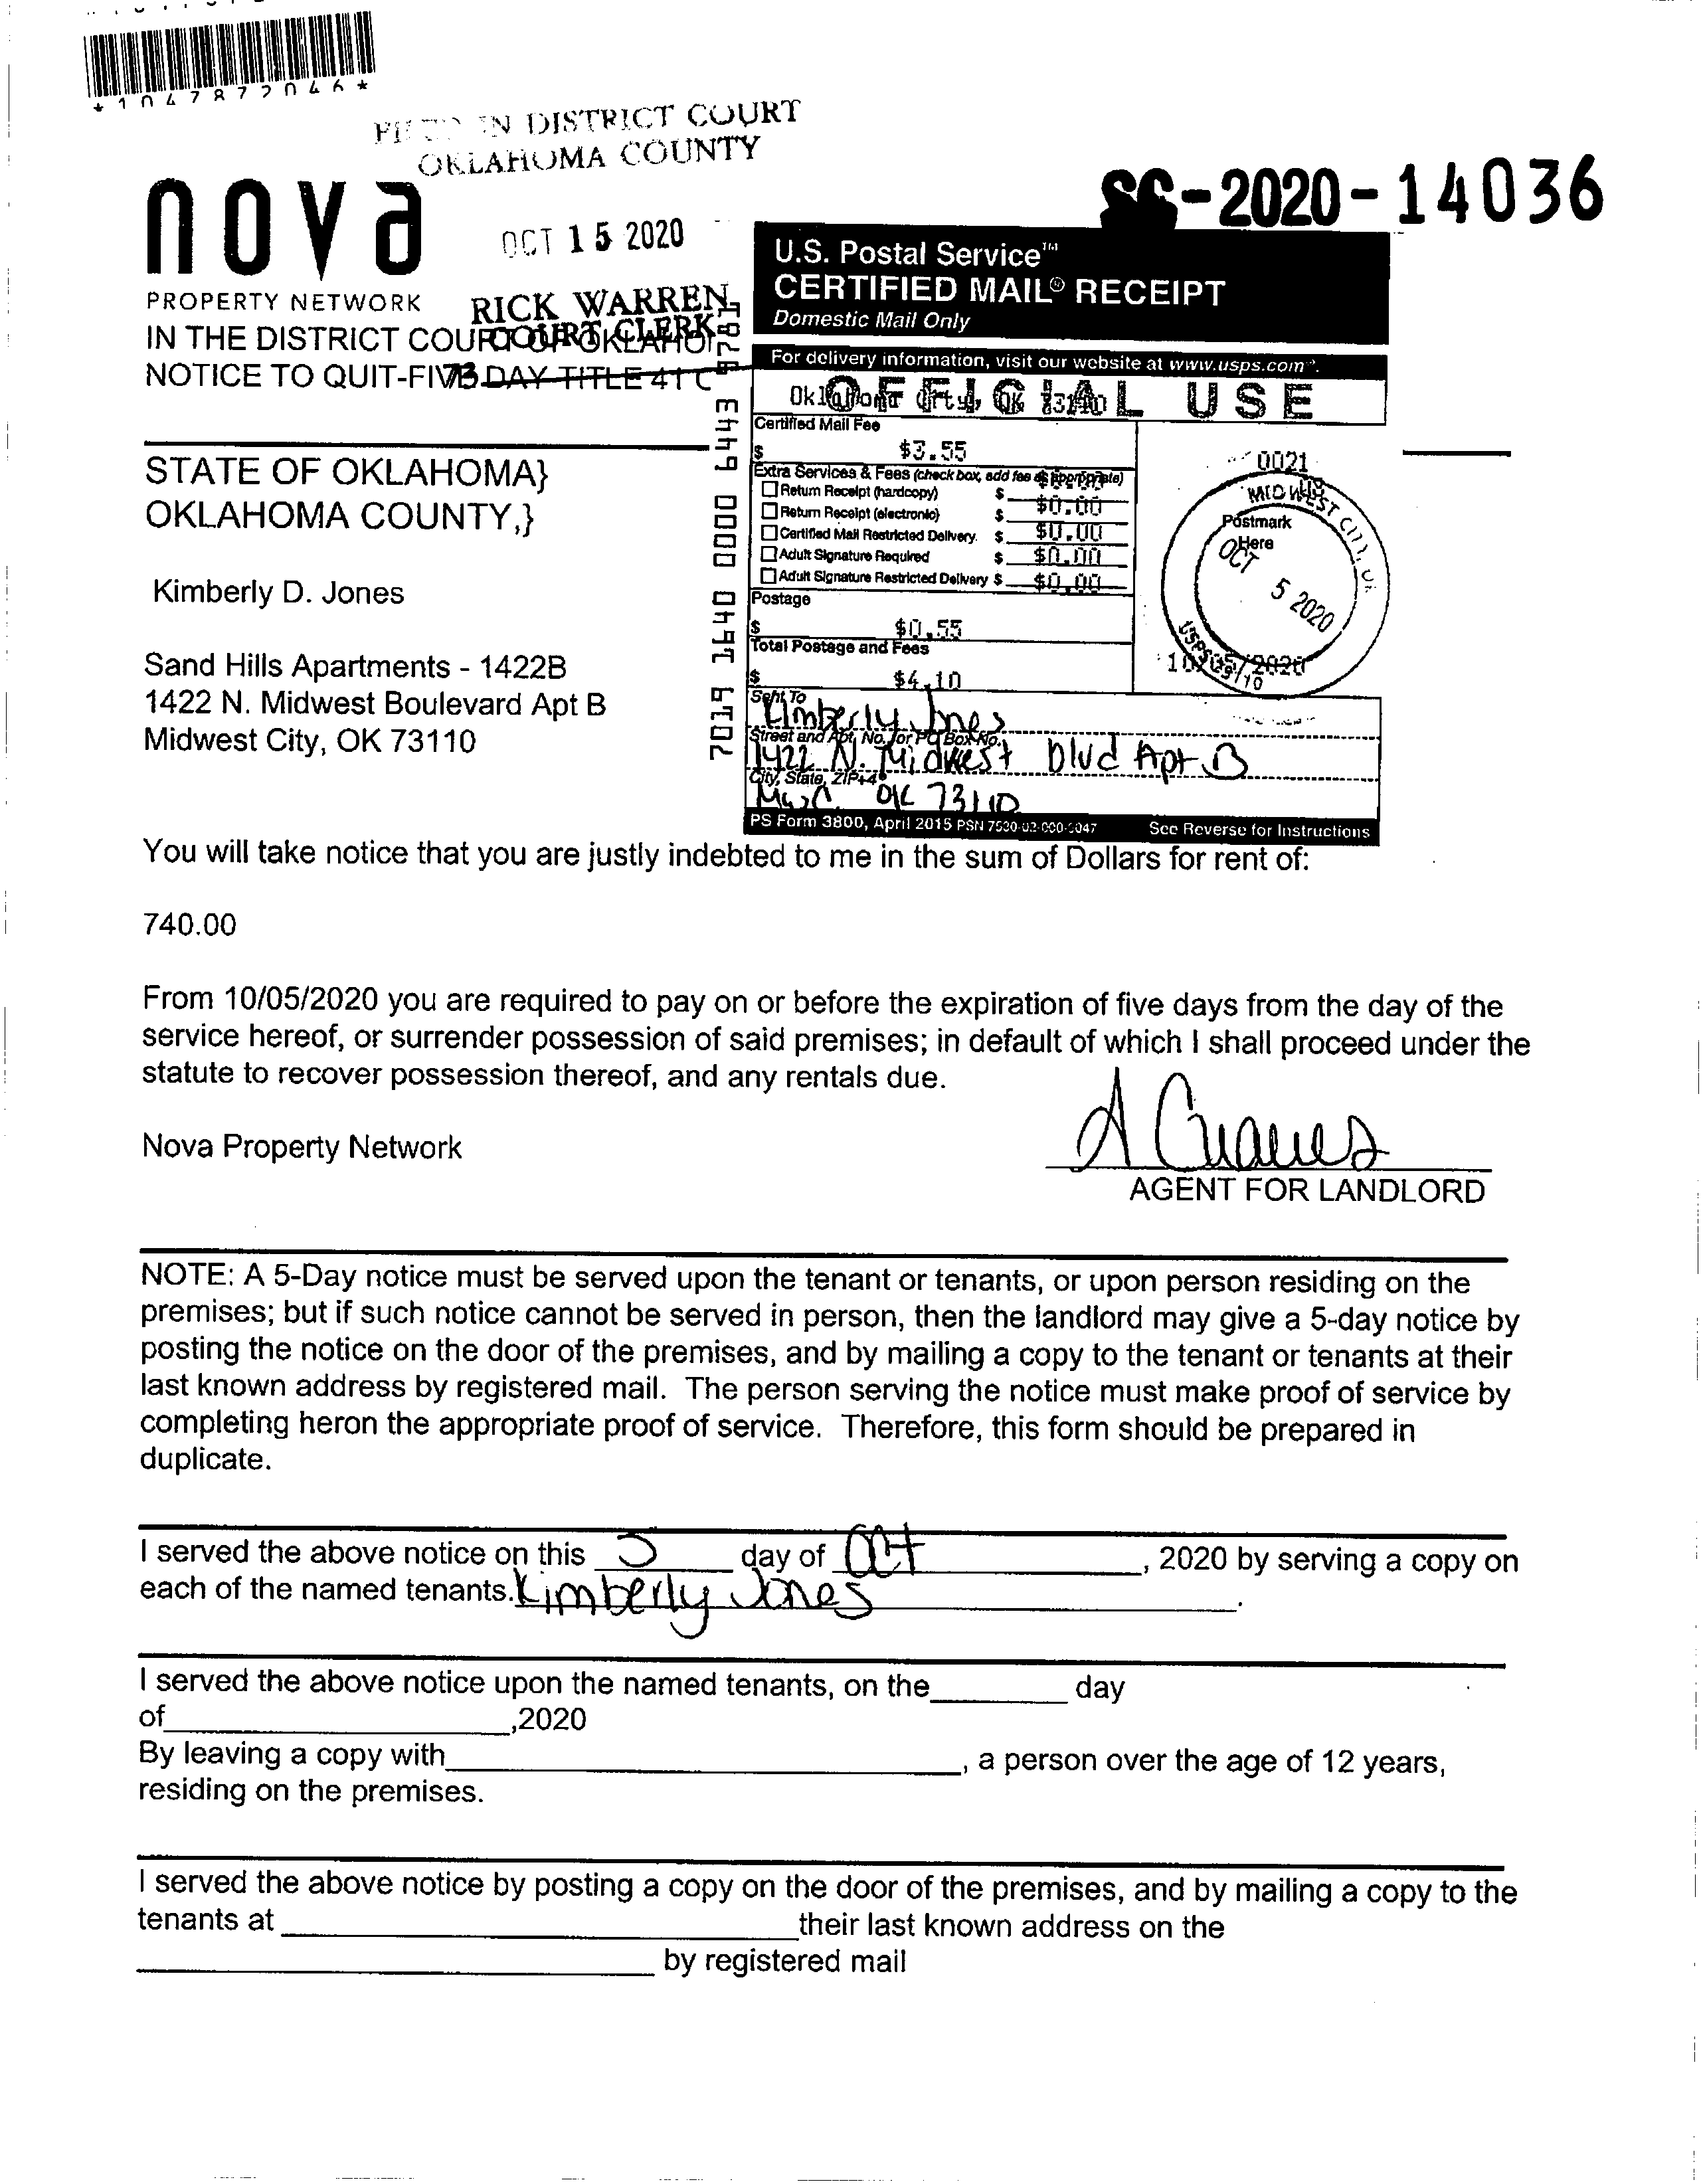 *1047872046*
FILED IN DISTRICT COURT
OKLAHOMA COUNTY
SC-2020-14036
nova
OCT 15 2020
PROPERTY NETWORK
RICK WARREN
COURT CLERK
73
IN THE DISTRICT COURT OF
NOTICE TO QUIT-FIVE DAY TITLE 41
U.S. Postal Service™
CERTIFIED MAIL® RECEIPT
Domestic Mail Only
For delivery information, visit our website at www.usps.com®.
OFFICIAL USE
7019 1640 0000 6443
Certified Mail Fee
$ $3.55
Extra Services & Fees (check box, add fee as appropriate)
Return Receipt (hardcopy) $ $0.00
Return Receipt (electronic) $ $0.00
Certified Mail Restricted Delivery $ $0.00
Adult Signature Required $ $0.00
Adult Signature Restricted Delivery $ $0.00
Postage
$ $0.55
Total Postage and Fees
$ $4.10
0021
MIDWEST CITY, OK
Postmark
Here
OCT 5 2020
10/05/2020
Sent To
Kimberly Jones
Street and Apt. No., or PO Box No.
1422 N. Midwest Blvd Apt B
City, State, ZIP+4®
MWC OK 73110
PS Form 3800, April 2015 PSN 7530-02-000-9047 See Reverse for Instructions
STATE OF OKLAHOMA}
OKLAHOMA COUNTY,}
Kimberly D. Jones
Sand Hills Apartments - 1422B
1422 N. Midwest Boulevard Apt B
Midwest City, OK 73110
You will take notice that you are justly indebted to me in the sum of Dollars for rent of:
740.00
From 10/05/2020 you are required to pay on or before the expiration of five days from the day of the
service hereof, or surrender possession of said premises; in default of which I shall proceed under the
statute to recover possession thereof, and any rentals due.
Nova Property Network
AGENT FOR LANDLORD
NOTE: A 5-Day notice must be served upon the tenant or tenants, or upon person residing on the
premises; but if such notice cannot be served in person, then the landlord may give a 5-day notice by
posting the notice on the door of the premises, and by mailing a copy to the tenant or tenants at their
last known address by registered mail. The person serving the notice must make proof of service by
completing heron the appropriate proof of service. Therefore, this form should be prepared in
duplicate.
I served the above notice on this 5 day of Oct, 2020 by serving a copy on
each of the named tenants. Kimberly Jones.
I served the above notice upon the named tenants, on the day
of ,2020
By leaving a copy with , a person over the age of 12 years,
residing on the premises.
I served the above notice by posting a copy on the door of the premises, and by mailing a copy to the
tenants at their last known address on the
by registered mail